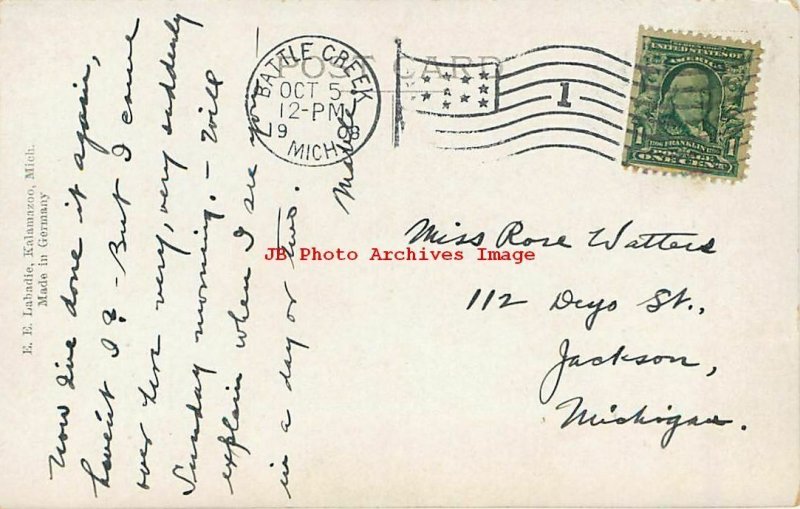 POST CARD
BATTLE CREEK
OCT 5
12-PM
1908
MICH.
1
UNITED STATES OF AMERICA
FRANKLIN
1 1
ONE CENT
E. E. Labadie, Kalamazoo, Mich.
Made in Germany
Now I've done it again,
haven't I? - But I came
over here very, very suddenly
Sunday morning. - Will
explain when I see you
in a day or two.
Miss Rose Watters
112 Deyo St.,
Jackson,
Michigan.
JB Photo Archives Image